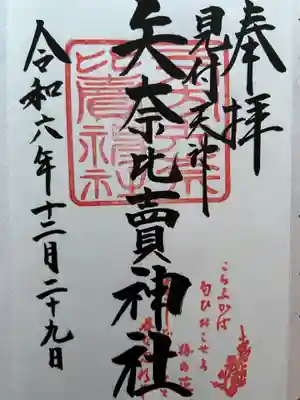 奉拝
見付天神
矢奈比賣神社
令和六年十二月二十九日
こちふかば
匂ひおこせよ
梅の花